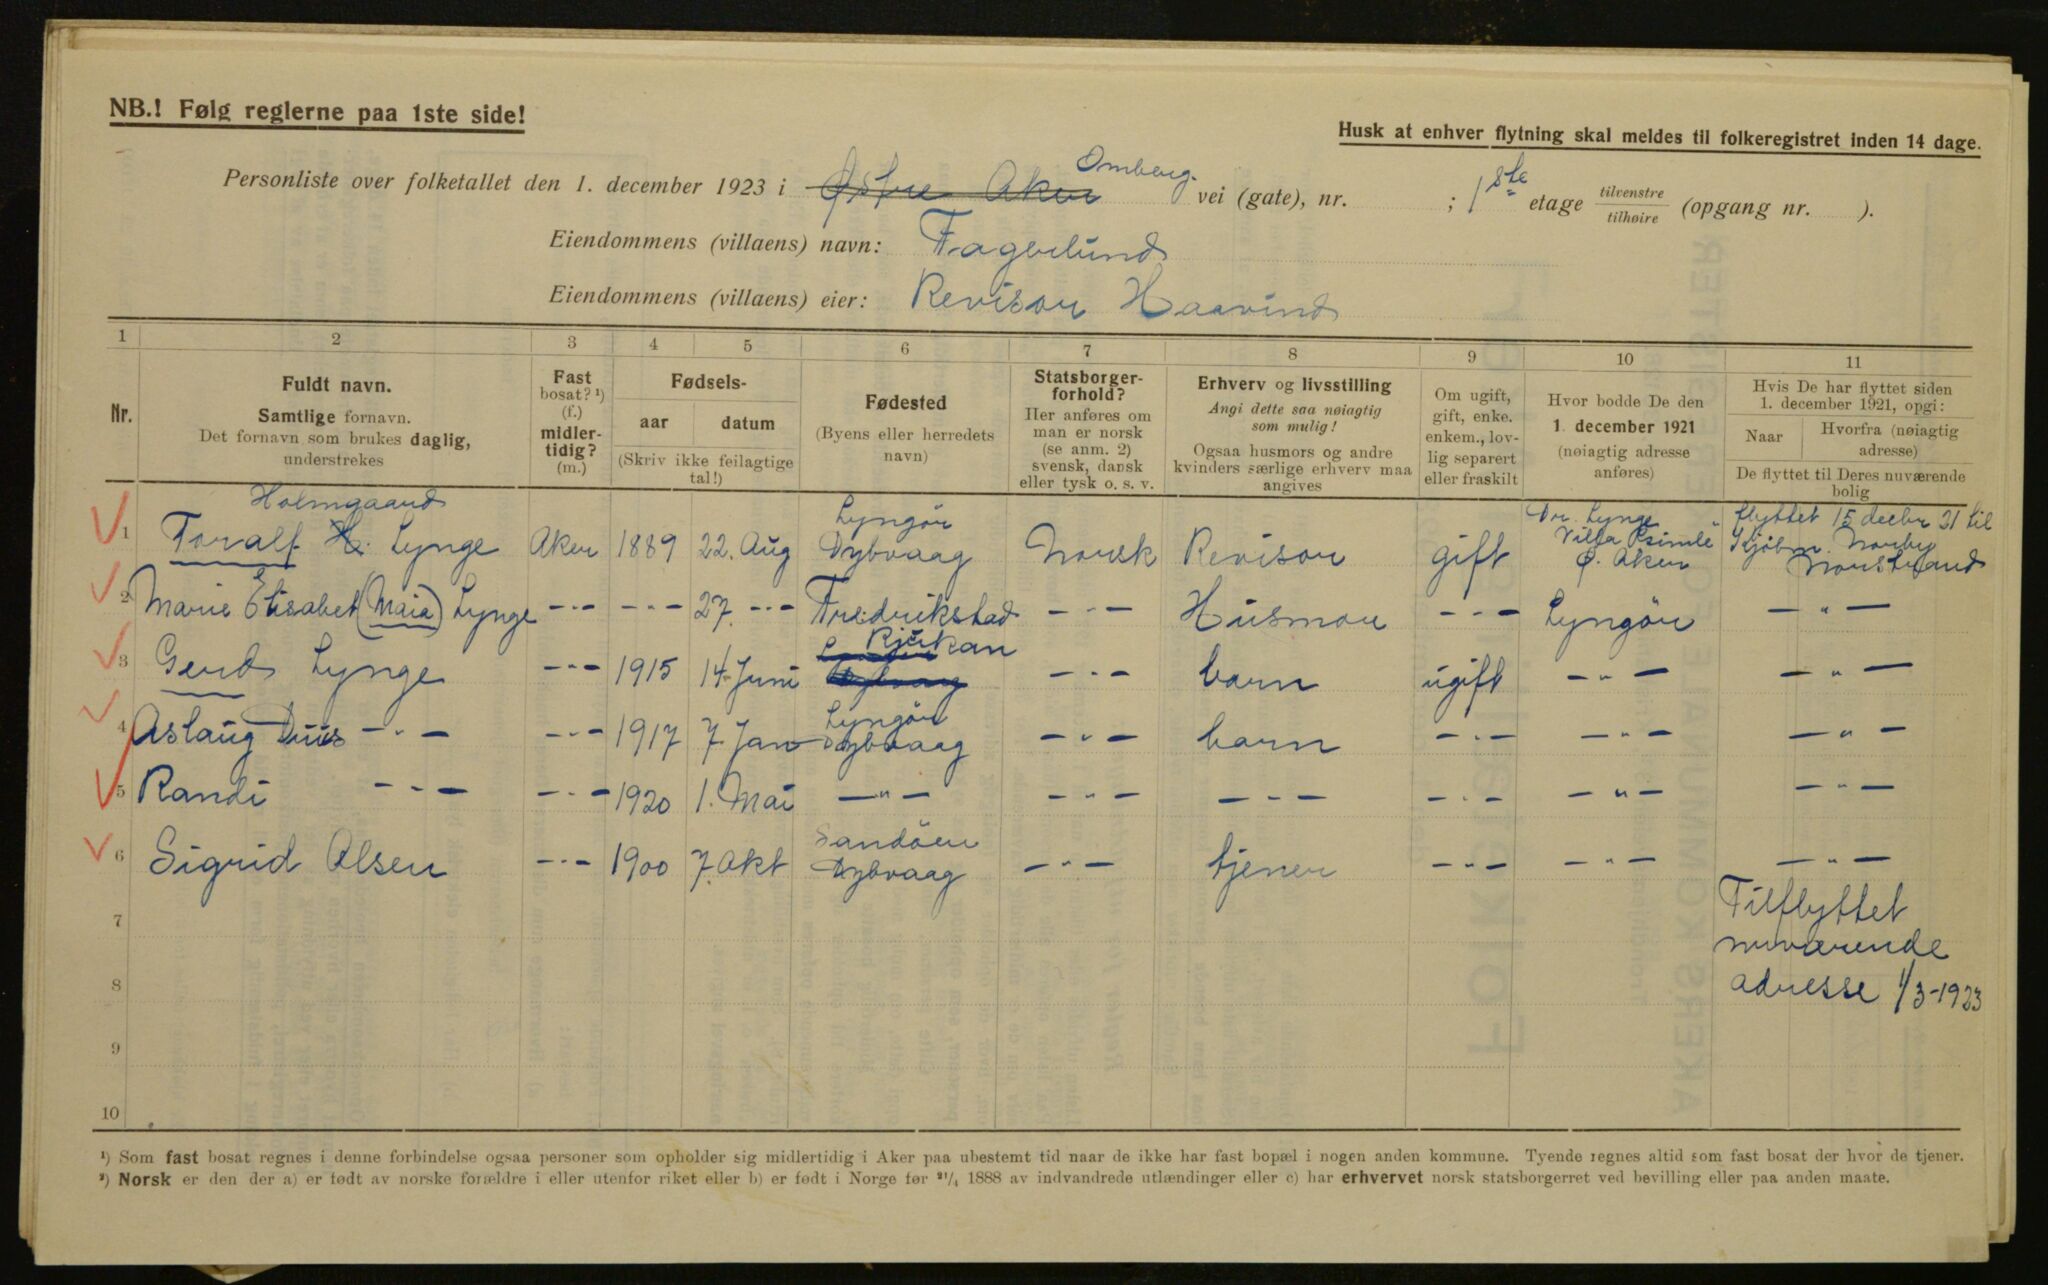 NB.! Følg reglerne paa 1ste side!
Husk at enhver flytning skal meldes til folkeregistret inden 14 dage.
Personliste over folketallet den 1. december 1923 i Østre Aker Omberg. vei (gate), nr. ; 1ste etage tilvenstre tilhøire (opgang nr. ).
Eiendommens (villaens) navn: Fagerlund
Eiendommens (villaens) eier: Revisor Haavind
1 2 3 4 5 6 7 8 9 10 11
Nr.
Fuldt navn.
Samtlige fornavn.
Det fornavn som brukes daglig,
understrekes
Fast
bosat? ¹)
(f.)
midler-
tidig?
(m.)
Fødsels-
aar datum
(Skriv ikke feilagtige
tal!)
Fødested
(Byens eller herredets
navn)
Statsborger-
forhold?
Her anføres om
man er norsk
(se anm. 2)
svensk, dansk
eller tysk o. s. v.
Erhverv og livsstilling
Angi dette saa nøiagtig
som mulig!
Ogsaa husmors og andre
kvinders særlige erhverv maa
angives
Om ugift,
gift, enke.
enkem., lov-
lig separert
eller fraskilt
Hvor bodde De den
1. december 1921
(nøiagtig adresse
anføres)
Hvis De har flyttet siden
1. december 1921, opgi:
Naar Hvorfra (nøiagtig
adresse)
De flyttet til Deres nuværende
bolig
Holmgaard Lyngør Dr. Lynge flyttet 15 decbr 21 til
1 Toralf H. Lynge Aker 1889 22. Aug Dybvaag Norsk Revisor gift Villa Ø. Aker Kjøbm. Norby Norstrand
2 Marie Elisabet (Maia) Lynge –"– –"– 27. –"– Fredrikstad –"– Husmor –"– Lyngör –"–
3 Gerd Lynge –"– 1915 14 Juni Rjukan Dybvaag –"– barn ugift –"– –"–
4 Aslaug Duus –"– –"– 1917 7 Jan Lyngör Dybvaag –"– barn –"– –"– –"–
5 Randi –"– –"– 1920 1. Mai –"– –"– –"– –"– –"– –"–
6 Sigrid Olsen –"– 1900 7. Okt Sandöen Dybvaag –"– tjener –"– –"– –"–
7 Tilflyttet
nuværende
8 adresse 1/3-1923
9
10
¹) Som fast bosat regnes i denne forbindelse ogsaa personer som opholder sig midlertidig i Aker paa ubestemt tid naar de ikke har fast bopæl i nogen anden kommune. Tyende regnes altid som fast bosat der hvor de tjener.
²) Norsk er den der a) er født av norske forældre i eller utenfor riket eller b) er født i Norge før ²¹/₄ 1888 av indvandrede utlændinger eller c) har erhvervet norsk statsborgerret ved bevilling eller paa anden maate.